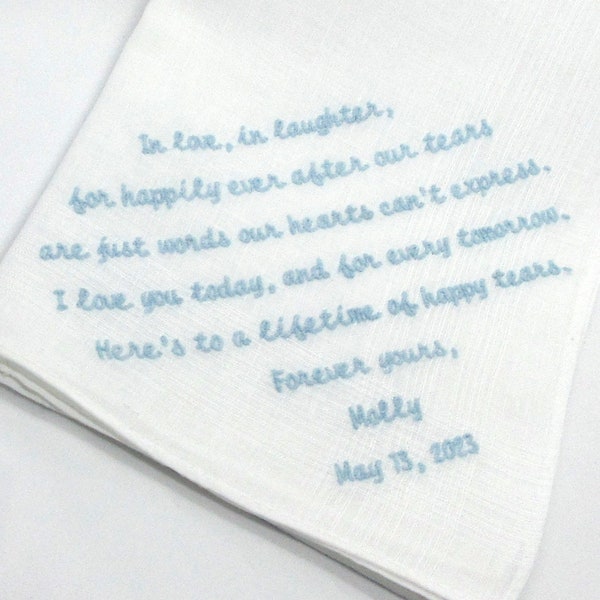 In love, in laughter,
for happily ever after our tears
are just words our hearts can't express.
I love you today, and for every tomorrow.
Here's to a lifetime of happy tears.
Forever yours,
Holly
May 13, 2023